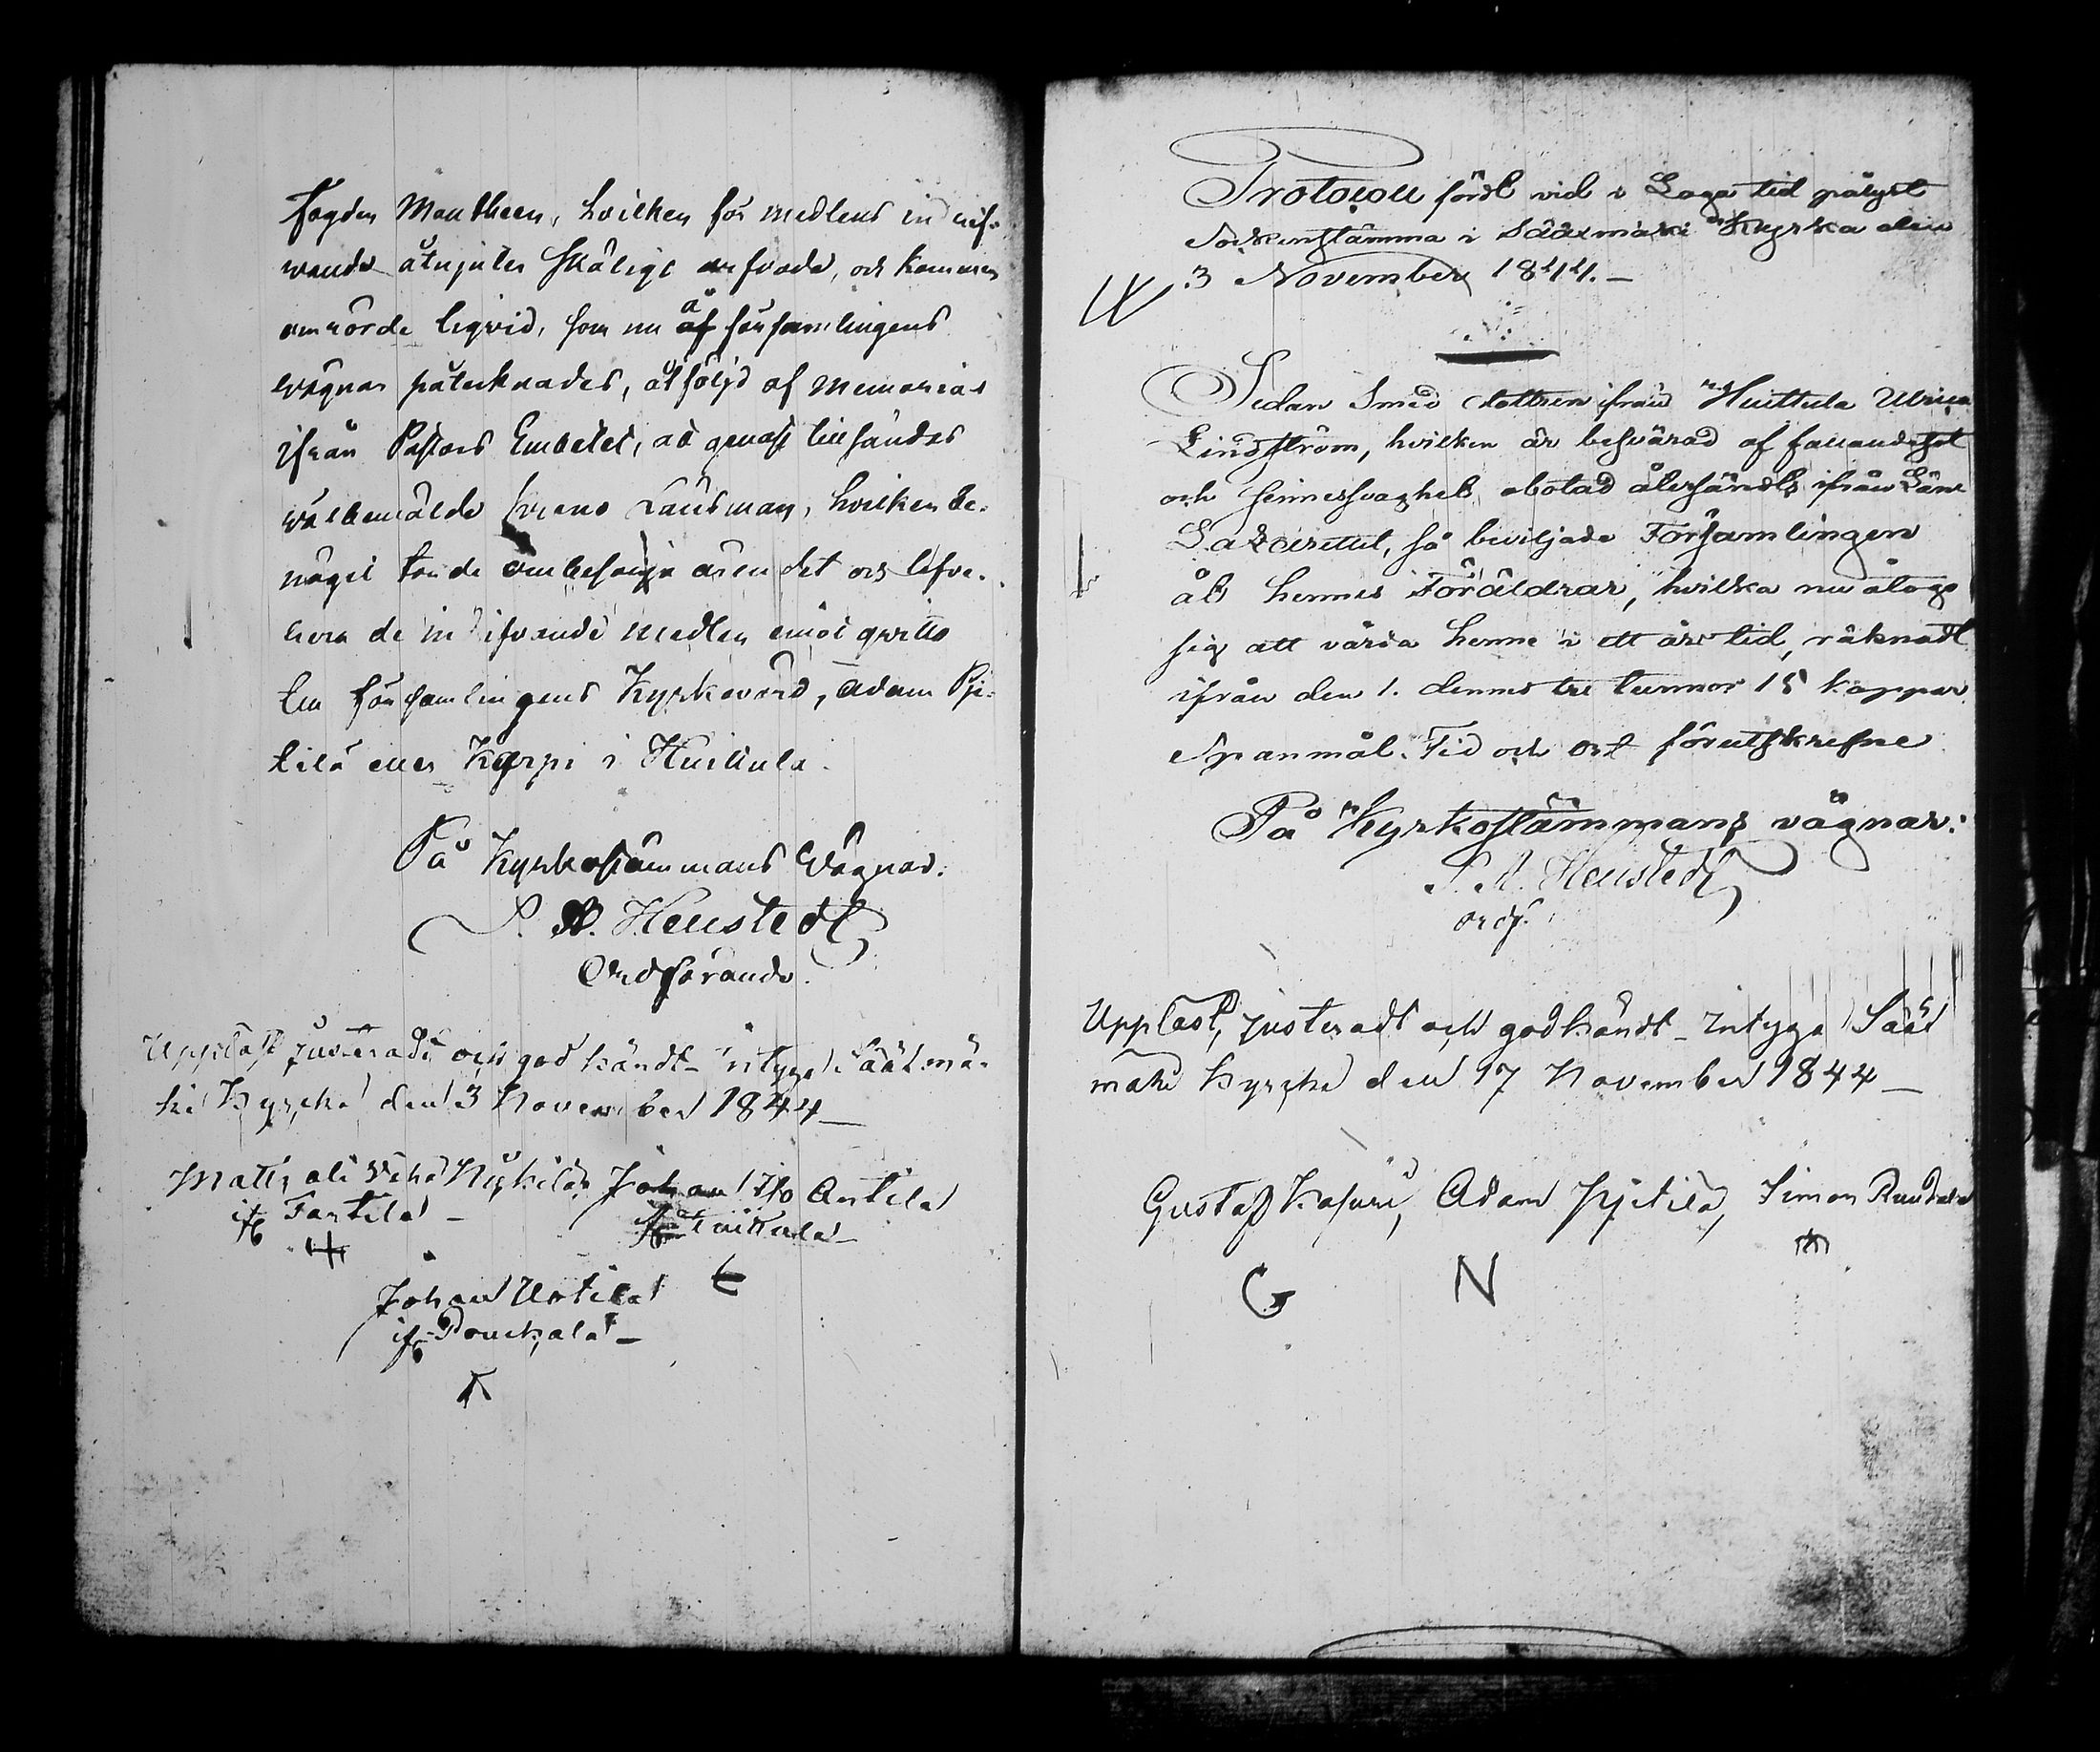 Fogden Mantheen, hvilken för medlens indrif-
wande åtnjuter skäligt arfvode, och kommer
omrörde liqvid, som nu å församlingens
wägnar påtecknades, åtföljd af Memorial
ifrån Pastors Embetet, at genast tillsändas
wälbemälde Länsman, hvilken be-
näget torde ombesörja ärendet och lefve-
rera de indrifvande medlen emot qvitto
till församlingens Kyrkovärd, Adam Pji-
tilä eller Karpi i Huittula.
På Kyrkostämmans Wägnar:
S. A. Hellstedt
Ordförande.
Uppläst justeradt och godkändt intyga Sääxmä-
ki Kyrcka den 3 November 1844 —
Matts Nickilä Johan Antila
if Tarttila — Tuittula —
Johan Uotila
if Ponckala —
Protocoll fördt vid i Laga tid pålyst
Sockenstämma i Sääxmäki Kyrka den
3 November 1844. —
Sedan Smed dottren ifrån Huittula Ulrica
Lindström, hvilken är besvärad af fallandesot
och sinnessvaghet, obotad återsändts ifrån Läns
Lazarettet, så beviljade Församlingen
åt hennes Föräldrar, hvilka nu åtogo
sig att vårda henne i ett års tid, räknadt
ifrån den 1. dennes tre tunnor 15 kappar
Spanmål. Tid och ort förutskrefne
På Kyrkostämmans vägnar:
S. A. Hellstedt
ordf.
Uppläst, justeradt och godkändt intyga Sääx
mäki kyrcka den 17 November 1844 —
Gustaf Kasuri, Adam Pjitilä, Simon Randala
G N